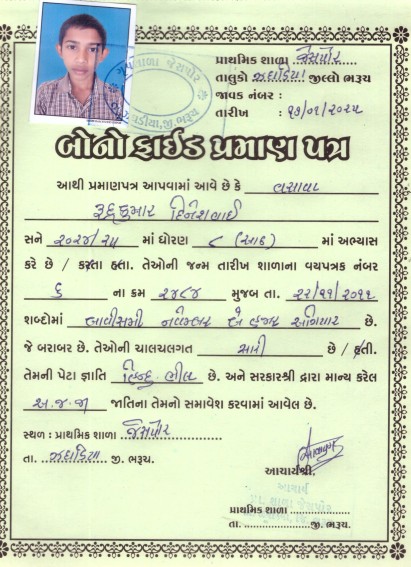 પ્રાથમિક શાળા જેસપોર
તાલુકો ઝઘડિયા જીલ્લો ભરૂચ
જાવક નંબર :
તારીખ : ૧૭/૦૧/૨૦૨૫
બોનો ફાઈડ પ્રમાણ પત્ર
આથી પ્રમાણપત્ર આપવામાં આવે છે કે વસાવા
રૂદ્રકુમાર દિનેશભાઈ
સને ૨૦૨૪/૨૫ માં ધોરણ ૮ (આઠ) માં અભ્યાસ
કરે છે / કરતા હતા. તેઓની જન્મ તારીખ શાળાના વયપત્રક નંબર
૬ ના ક્રમ ૨૪૮૪ મુજબ તા. ૨૨/૧૧/૨૦૧૧
શબ્દોમાં બાવીસમી નવેમ્બર બે હજાર અગિયાર છે.
જે બરાબર છે. તેઓની ચાલચલગત સારી છે / હતી.
તેમની પેટા જ્ઞાતિ હિન્દુ ભીલ છે. અને સરકારશ્રી દ્રારા માન્ય કરેલ
અ.જ.જા જાતિના તેમનો સમાવેશ કરવામાં આવેલ છે.
સ્થળ : પ્રાથમિક શાળા જેસપોર
તા. ઝઘડિયા જી. ભરૂચ.
આચાર્યશ્રી.
પ્રાથમિક શાળા
તા. જી. ભરૂચ.